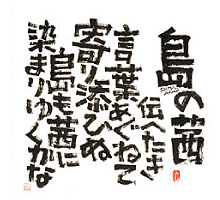 島の茜
伝へたき
言葉あぐねて
寄り添ひぬ
島も茜に
染まりゆくかな